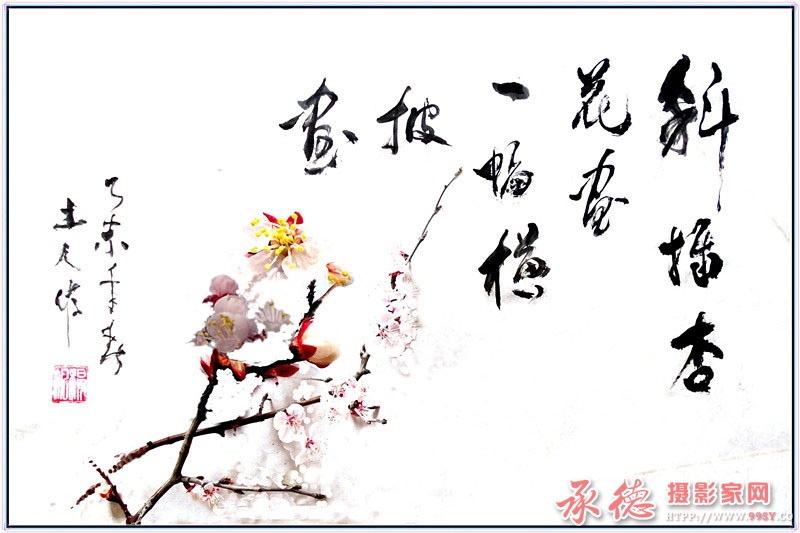 斜插杏
花
一幅横
披
畫
乙未年春
承德摄影家网
HTTP://WWW.998Y.CO